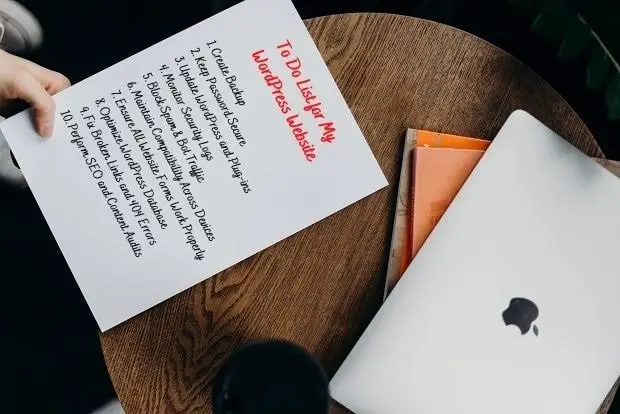 To Do List for My
WordPress Website
1. Create Backup
2. Keep Passwords Secure
3. Update WordPress and Plug-ins
4. Monitor Security Logs
5. Block Spam & Bot Traffic
6. Maintain Compatibility Across Devices
7. Ensure All Website Forms Work Properly
8. Optimize WordPress Database
9. Fix Broken Links and 404 Errors
10. Perform SEO and Content Audits